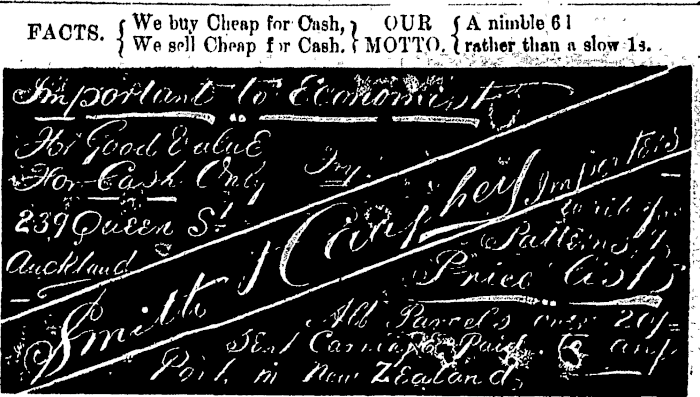 FACTS. { We buy Cheap for Cash, } OUR { A nimble 6d
We sell Cheap for Cash. } MOTTO. { rather than a slow 1s.
Important to Economists
For Good Value
For Cash Only Try
239 Queen St
Auckland
Smith & Caughey Importers
Write for
Patterns &
Price Lists
All Parcels over 20/-
Sent Carriage Paid to any
Port in New Zealand